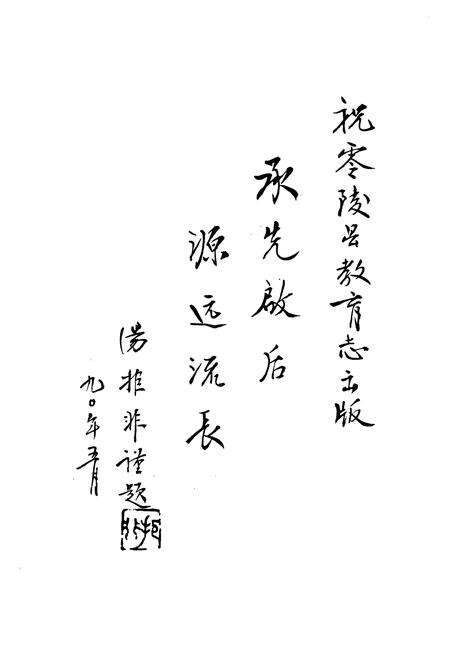 祝零陵县教育志出版
承先啟后
源远流長
湯拒非谨题
九〇年五月